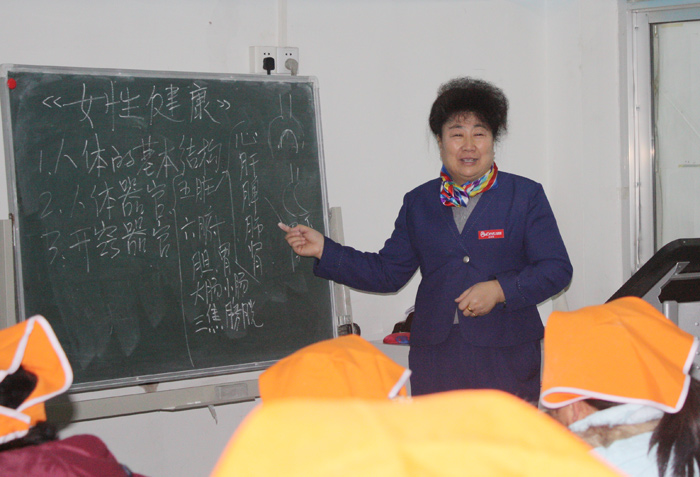 《女性健康》
1.人体的基本结构
2.人体器官
3.开窍器官
五脏
心肝脾肺肾
六腑
胆胃
大肠小肠
三焦膀胱